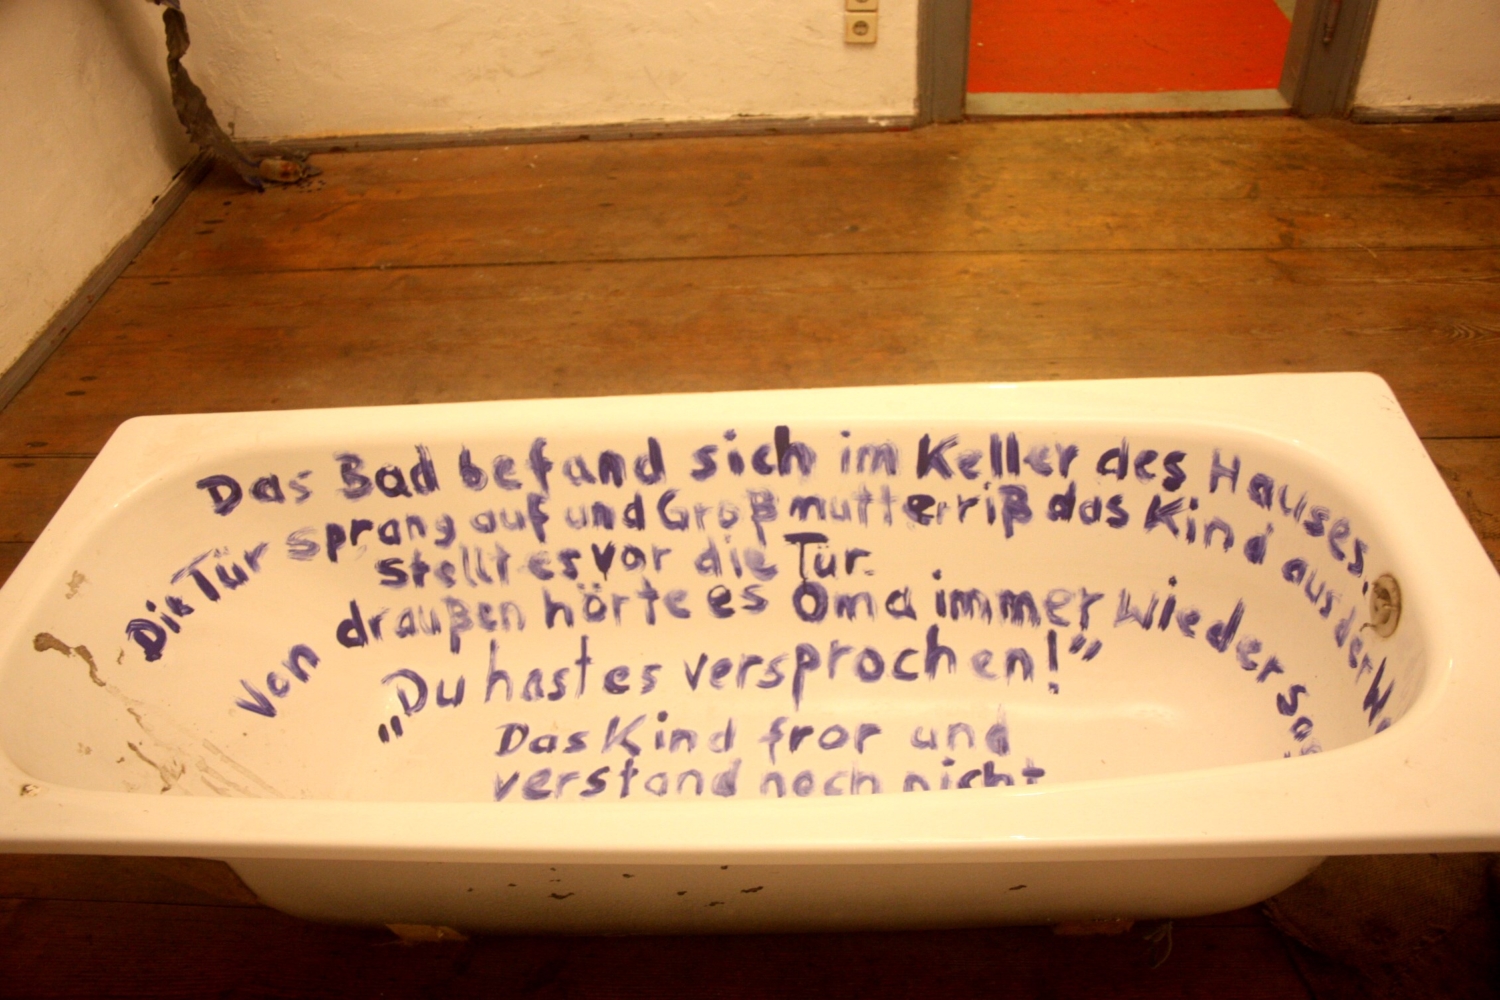 Das Bad befand sich im Keller des Hauses.
Die Tür sprang auf und Großmutter riß das Kind aus der
stellt es vor die Tür.
Von draußen hörte es Oma immer wieder
„Du hast es versprochen!”
Das Kind fror und
verstand noch nicht